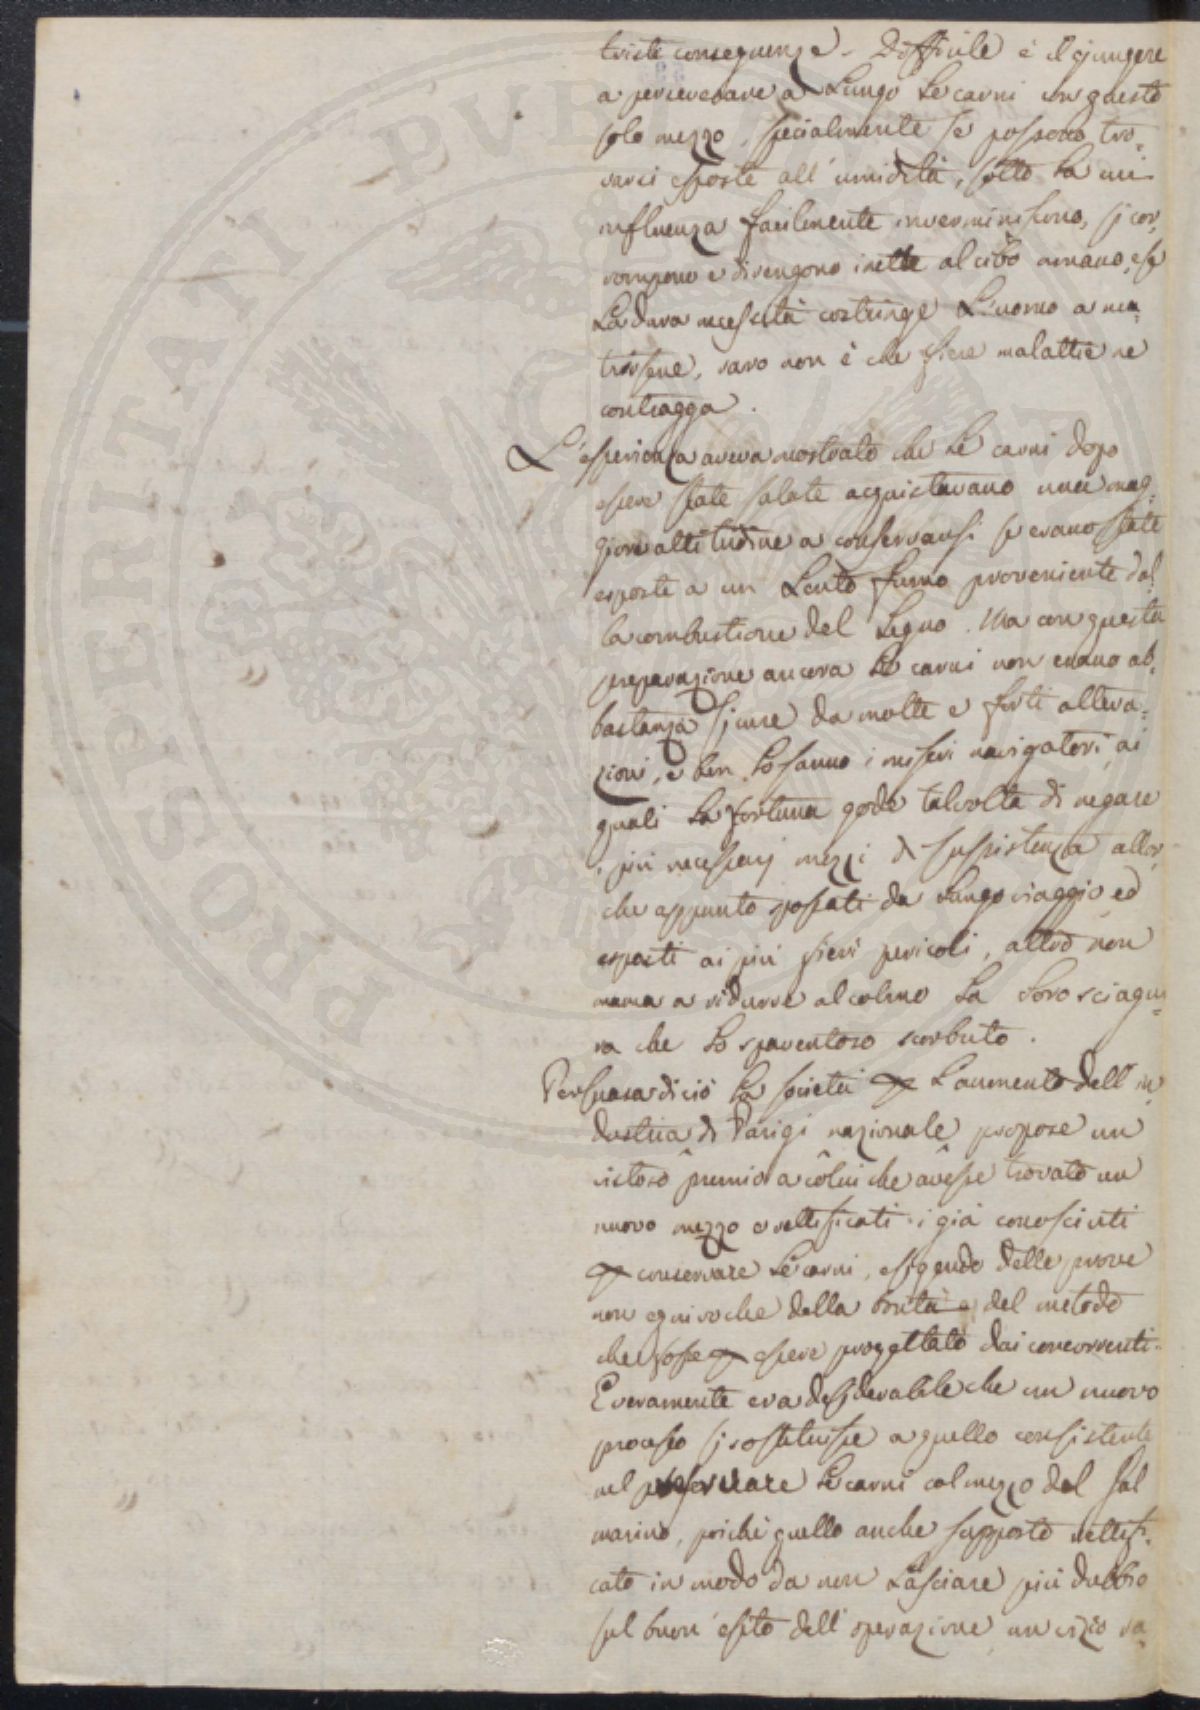 triste conseguenze. Difficile è il giungere
a perservare a Lungo Le carni con questo
solo mezzo, specialmente se possono tro-
varsi esposte all'umidità, sotto La cui
influenza facilmente inverminiscono, si cor-
rompono e divengono inette al cibo umano, e se
La dura necessità costringe L'uomo a nu-
trirsene, raro non è che fiere malattie ne
contragga.
L'esperienza aveva mostrato che Le carni dopo
essere state salate acquistavano una mag-
giore attitudine a conservarsi se erano state
esposte a un Lento fumo proveniente dal-
la combustione del Legno. Ma con questa
preparazione ancora Le carni non erano ab-
bastanza sicure da molte e forti altera-
zioni, e ben Lo sanno i miseri navigatori, ai
quali La fortuna gode talvolta di negare
i più necessarj mezzi di sussistenza allor-
che appunto spossati da Lungo viaggio, ed
esposti ai più fieri pericoli, altro non
manca a ridurre al colmo La Loro sciagu-
ra che Lo spaventoso scorbuto.
Persuasa di ciò La società L'aumento dell'in-
dustria di Parigi nazionale propose un
vistoso premio a colui che avesse trovato un
nuovo mezzo o rettificati i già conosciuti
conservare Le carni, esigendo delle prove
non equivoche della bontà del metodo
che fosse essere progettato dai concorrenti.
E veramente era desiderabile che un nuovo
processo si sostituisse a quello consistente
nel preservare Le carni col mezzo del Sal
marino, poichè quello anche supposto rettifi-
cato in modo da non Lasciare più dubbio
sul buon esito dell'operazione, un vizio ra-
PROSPERITATI PVBL